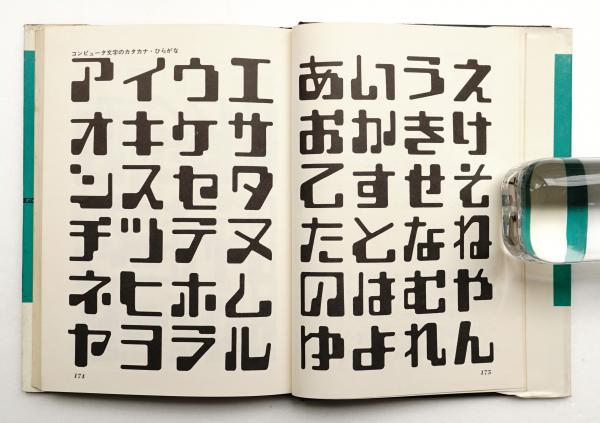 コンピュータ文字のカタカナ・ひらがな
アイウエ
オキケサ
ンスセタ
チツテヌ
ネヒホム
ヤヨラル
174
あいうえ
おかきけ
てすせそ
たとなね
のはむや
ゆよれん
175